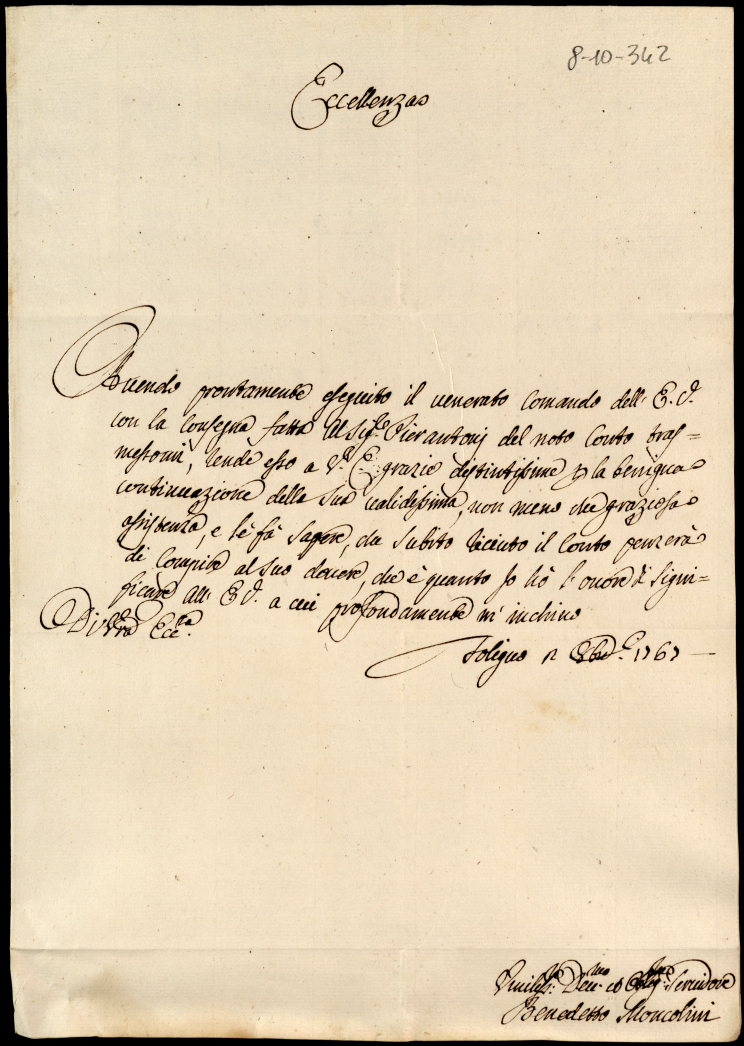 8-10-342
Eccellenza
Avendo prontamente eseguito il venerato comando dell'E. V.
con la consegna fatta al Sig.re Pierantonj del noto Conto tras=
messomi, rende esso a V.ra E. grazie distintissime p la benigna
continuazione della sua validissima, non meno che graziosa
assistenza, e le fà sapere, che subito riceuto il Conto penzerà
di compire al suo dovere, che è quanto Io hò l'onore di signi=
ficare all'E. V. a cui profondamente m'inchino
Di V.ra Ecc.za
Foligno 12 8bre 1767
Umiliss.o Dev.mo et Oblig.mo Servidore
Benedetto Moncolini